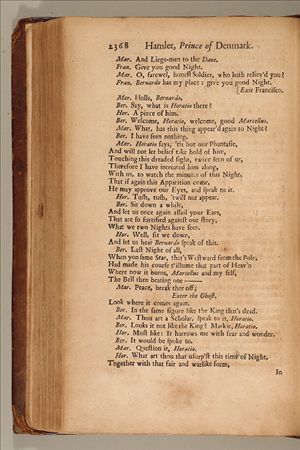 2368 Hamlet, Prince of Denmark.
Mar. And Liege-men to the Dane.
Fran. Give you good Night.
Mar. O, farewel, honest Soldier, who hath reliev'd you?
Fran. Bernardo has my place: give you good Night.
[Exit Francisco.
Mar. Holla, Bernardo.
Ber. Say, what is Horatio there?
Hor. A piece of him.
Ber. Welcome, Horatio, welcome, good Marcellus.
Mar. What, has this thing appear'd again to Night?
Ber. I have seen nothing.
Mar. Horatio says, 'tis but our Phantasie,
And will not let belief take hold of him,
Touching this dreaded sight, twice seen of us,
Therefore I have intreated him along,
With us, to watch the minutes of this Night,
That if again this Apparition come,
He may approve our Eyes, and speak to it.
Hor. Tush, tush, 'twill not appear.
Ber. Sit down a while,
And let us once again assail your Ears,
That are so fortified against our story,
What we two Nights have seen.
Hor. Well, sit we down,
And let us hear Bernardo speak of this.
Ber. Last Night of all,
When yon same Star, that's Westward from the Pole,
Had made his course t'illume that part of Heav'n
Where now it burns, Marcellus and my self,
The Bell then beating one——
Mar. Peace, break thee off;
Enter the Ghost.
Look where it comes again.
Ber. In the same figure like the King that's dead.
Mar. Thou art a Scholar, speak to it, Horatio.
Ber. Looks it not like the King? Mark it, Horatio.
Hor. Most like: It harrows me with fear and wonder.
Ber. It would be spoke to.
Mar. Question it, Horatio.
Hor. What art thou that usurp'st this time of Night,
Together with that fair and warlike form,
In